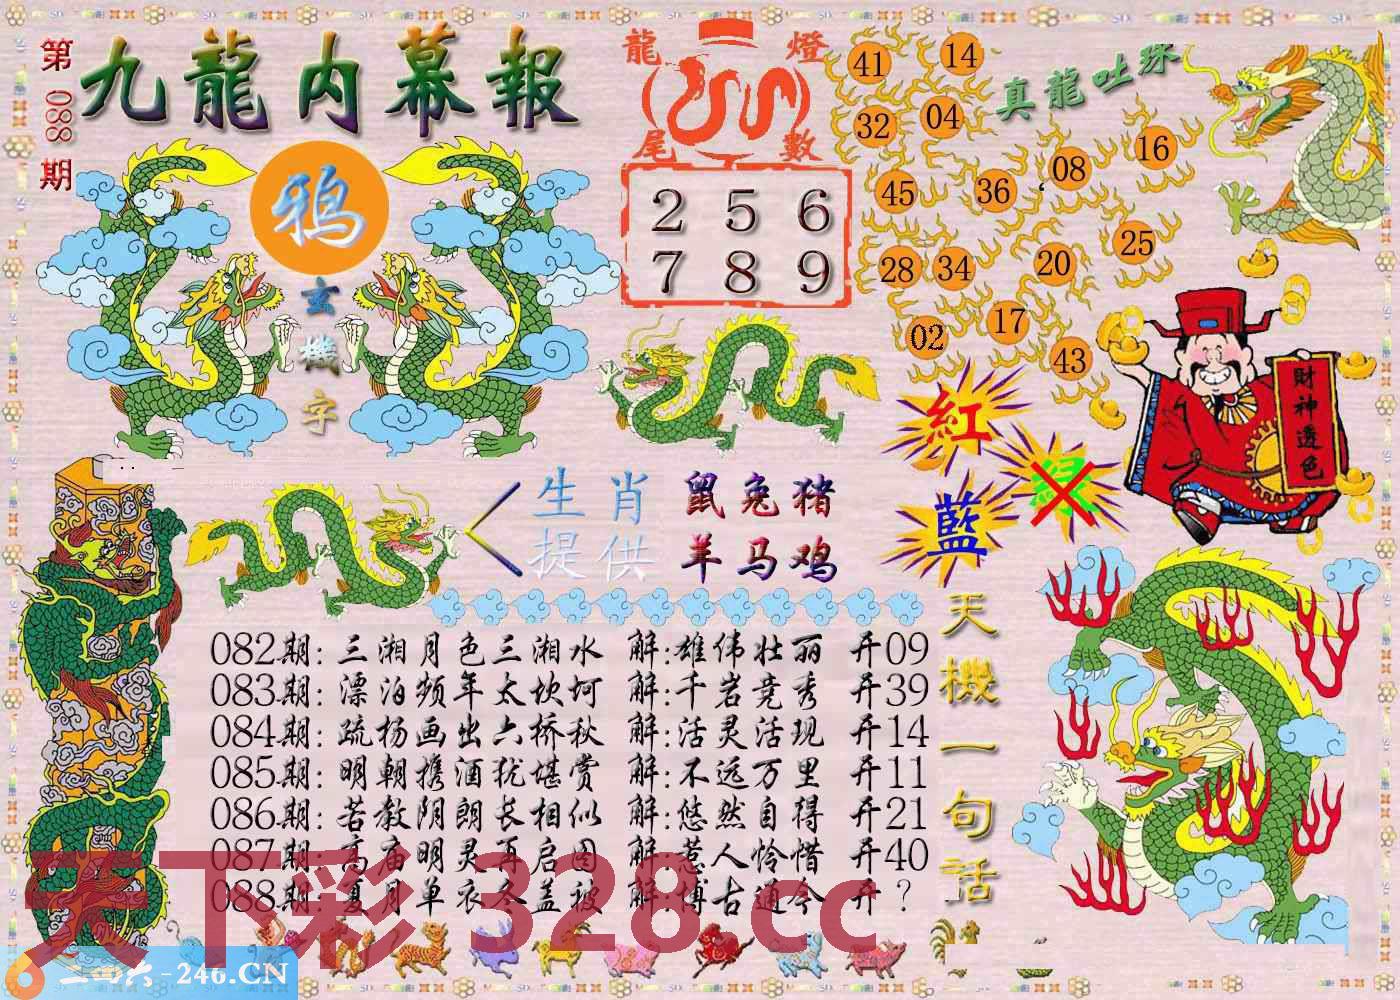 第088期
九龍内幕報
鸦
玄機字
龍燈
尾數
2 5 6
7 8 9
真龍吐珠
41 14
32 04
45 36 08 16
28 34 20 25
02 17 43
財神透色
紅
綠
藍
生肖 鼠兔猪
提供 羊马鸡
天機一句話
082期:三湘月色三湘水 解:雄伟壮丽 开09
083期:漂泊频年太坎坷 解:千岩竞秀 开39
084期:疏杨画出六桥秋 解:活灵活现 开14
085期:明朝携酒犹堪赏 解:不远万里 开11
086期:若教阴朗长相似 解:悠然自得 开21
087期:高庙明灵再启图 解:惹人怜惜 开40
088期:夏月单衣冬盖被 解:博古通今 开?
天下彩 328.cc
二四六-246.CN